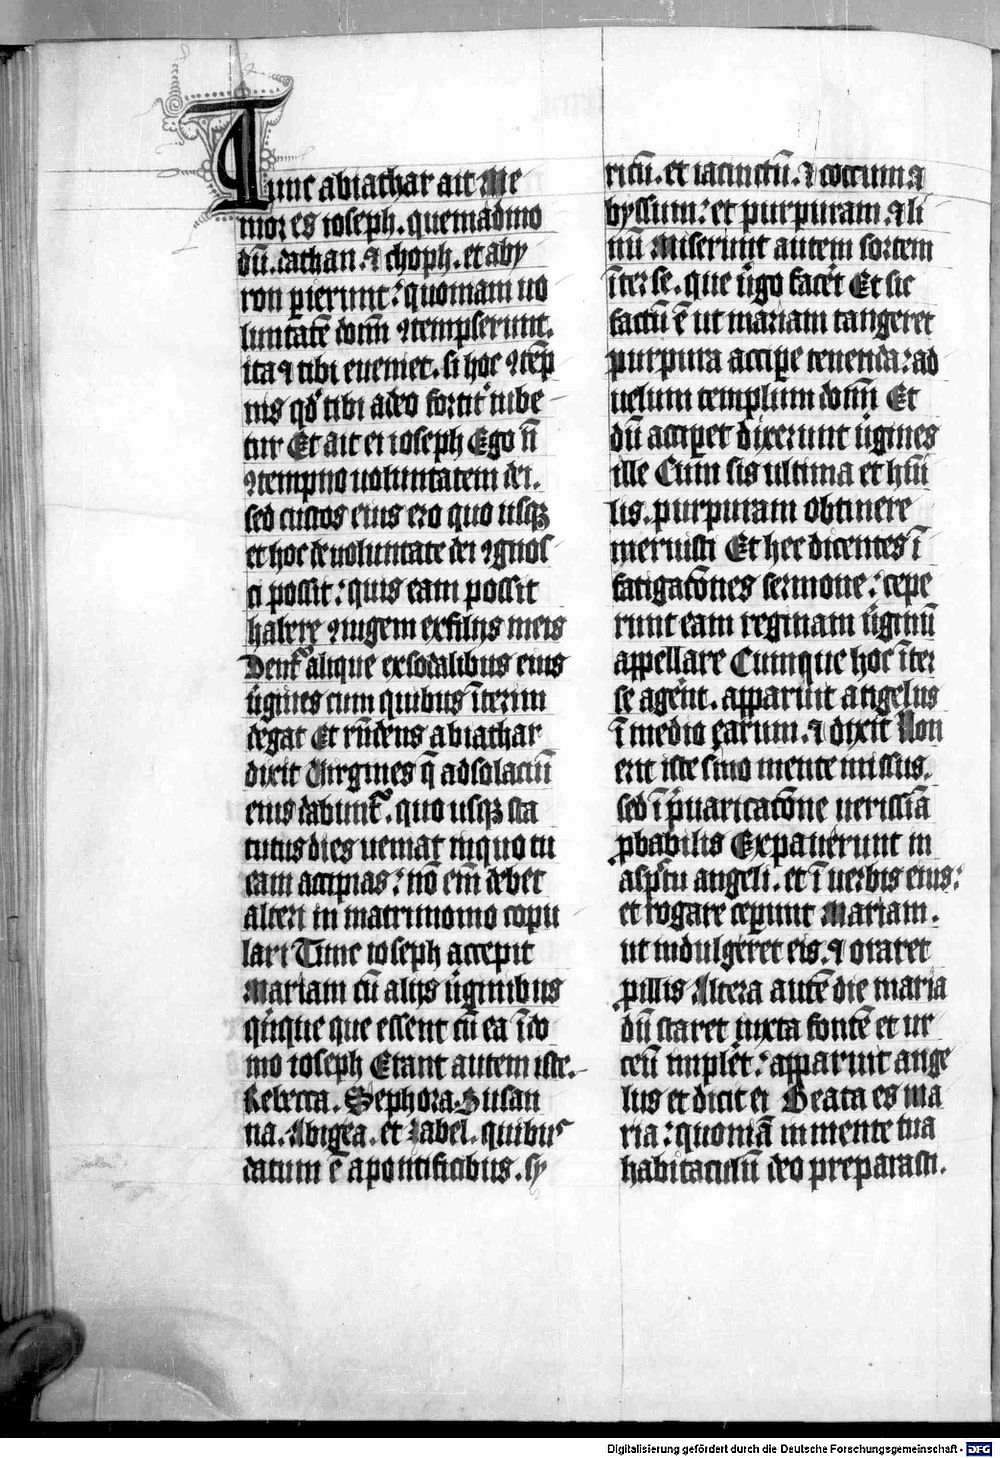 Tunc abiathar ait Me
mor es ioseph. quemadmo
dū. dathan. ⁊ choph. et aby
ron perierunt: quoniam uo
luntatē domī ꝯtempserunt.
ita ⁊ tibi eueniet. si hoc ꝯtēp
nis qd' tibi a deo fortit' iube
tur Et ait ei ioseph Ego n̄
ꝯtempno uoluntatem dei.
sed custos eius ero quo usqꝫ
et hoc de uoluntate dei ꝯgnos
ci possit: quis eam possit
habere ꝯiugem ex filijs meis
Dent' alique ex sodalibus eius
ūgines cum quibus īterim
degat Et rn̄dens abiathar
dixit Virgines q̄ ad solaciū
eius dabunt'. quo usqꝫ sta
tutus dies ueniat in quo tu
eam accipias: nō em̄ debet
alteri in matrimonio copu
lari Tunc ioseph accepit
Mariam cū alijs ūginibus
qn̄que que essent cū ea ī do
mo ioseph Erant autem iste.
Rebecca. Sephora. Susan
na. Abigea. et zabel. quibus
datum ē a pontificibus. sy
ricū. et iacinctū. ⁊ coccum. ⁊
byssum: et purpuram. ⁊ li
nū Miserunt autem sortem
īter se. que ūgo facēt Et sic
factū ē ut mariam tangeret
purpura accipe tenenda: ad
uelum templum domī Et
dū accipet dixerunt ūgines
ille Cum sis ultima et hūi
lis. purpuram obtinere
meruisti Et hec dicentes ī
fatigatōnes sermone: cepe
runt eam reginam ūginū
appellare Cumque hoc īter
se agēnt. apparuit angelus
ī medio earum. ⁊ dixit Non
erit iste smo mente missus.
sed ī p̄uaricatōne uerissīa
ꝓbabilis Expauerunt in
aspc̄tu angeli. et ī uerbis eius:
et rogare ceperunt Mariam.
ut indulgeret eis. ⁊ oraret
ꝓ illis Altera autē die maria
dū staret iuxta fontē et ur
ceū implēt: apparuit ange
lus et dicit ei Beata es ma
ria: quoniā in mente tua
habitaculū deo preparasti.
Digitalisierung gefördert durch die Deutsche Forschungsgemeinschaft - DFG